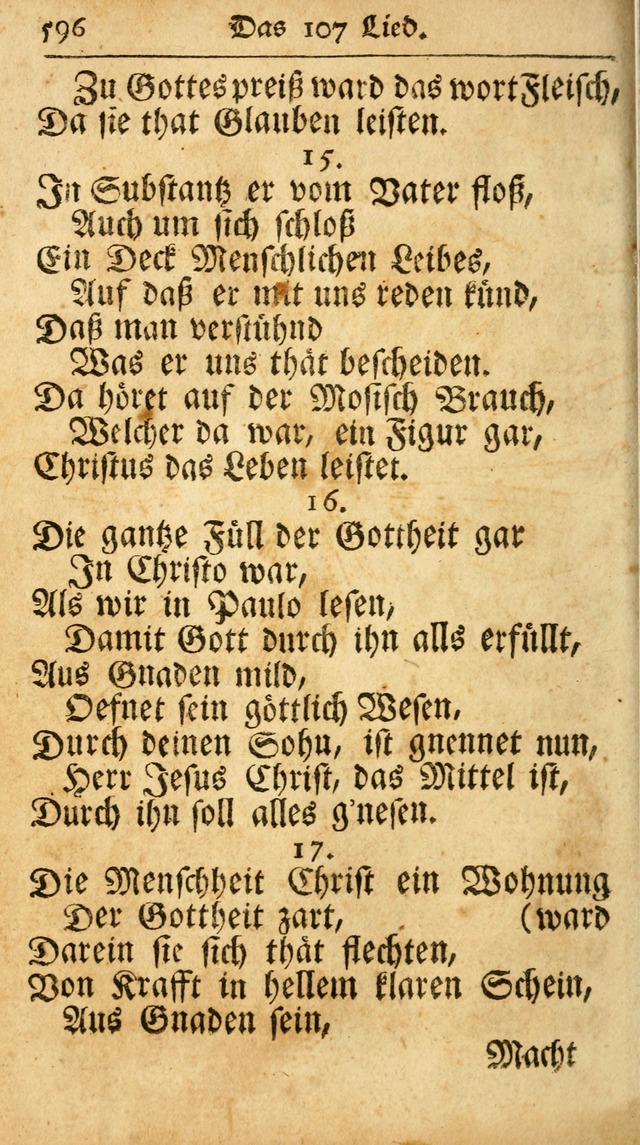 596 Das 107 Lied.
Zu Gottes preiß ward das wort Fleisch,
Da sie that Glauben leisten.
15.
In Substantz er vom Vater floß,
Auch um sich schloß
Ein Deck Menschlichen Leibes,
Auf daß er mit uns reden künd,
Daß man verstühnd
Was er uns thät bescheiden.
Da höret auf der Mosisch Brauch,
Welcher da war, ein Figur gar,
Christus das Leben leistet.
16.
Die gantze Füll der Gottheit gar
In Christo war,
Als wir in Paulo lesen,
Damit Gott durch ihn alls erfüllt,
Aus Gnaden mild,
Oefnet sein göttlich Wesen,
Durch deinen Sohn, ist gnennet nun,
Herr Jesus Christ, das Mittel ist,
Durch ihn soll alles g'nesen.
17.
Die Menschheit Christ ein Wohnung
Der Gottheit zart, (ward
Darein sie sich thät flechten,
Von Krafft in hellem klaren Schein,
Aus Gnaden sein,
Macht